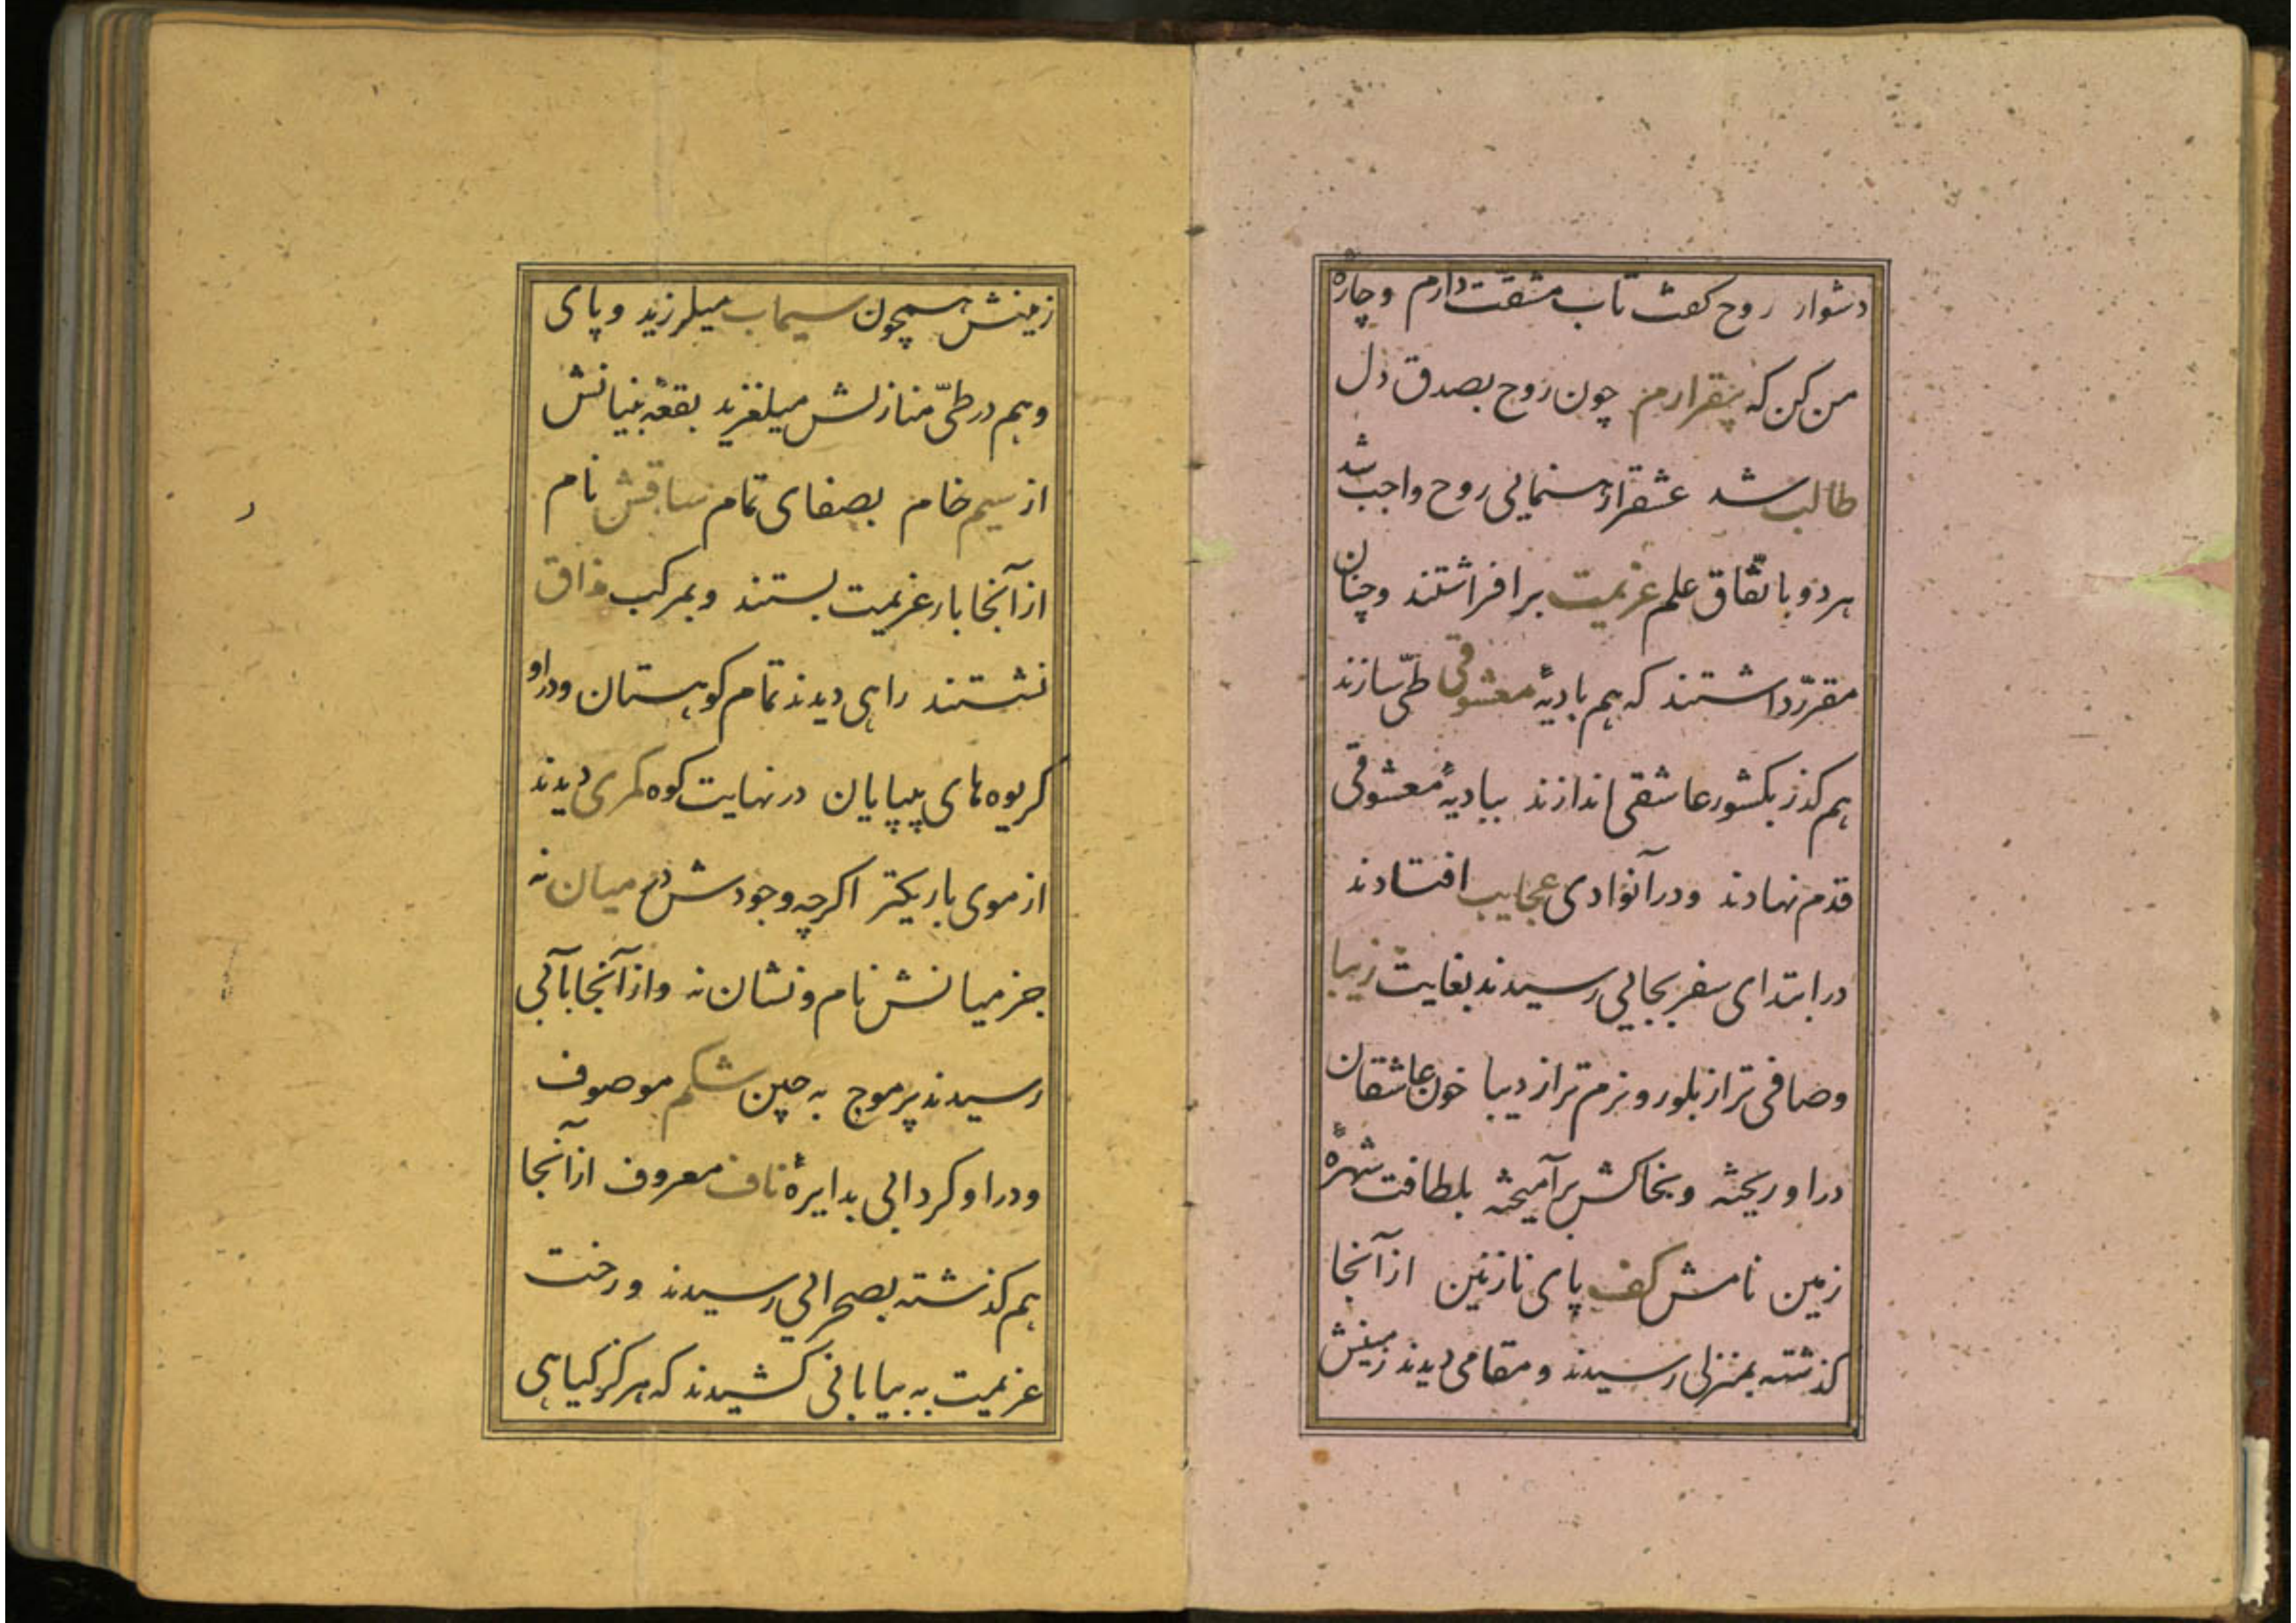 دشوار روح کفت تاب مشقت دارم و چارهٔ
من کن که بیقرارم چون روح بصدق دل
طالب شد عشقرا رهنمایی روح واجب شد
هر دو باتفاق علم عزیمت برافراشتند و چنان
مقرّر داشتند که هم بادیهٔ معشوقی طیّ سازند
هم کذر بکشور عاشقی اندازند ببادیهٔ معشوقی
قدم نهادند و در آنوادی عجایب افتادند
در ابتدای سفر بجایی رسیدند بغایت زیبا
و صافی تر از بلور و نرم تر از دیبا خون عاشقان
در او ریخته و بخاکش برآمیخته بلطافت شهرهٔ
زمین نامش کف پای نازنین از آنجا
کذشته بمنزلی رسیدند و مقامی دیدند زمینش
زمینش همچون سیماب میلرزید و پای
وهم در طیّ منازلش میلغزید بقعهٔ بنیانش
از سیم خام بصفای تمام ساقش نام
از آنجا بار عزیمت بستند و بمرکب
نشستند راهی دیدند تمام کوهستان و در او
کریوه های بیپایان در نهایت کوه کمری دیدند
از موی باریکتر اکرچه وجودش در میان نه
جز میانش نام و نشان نه و از آنجا بآبی
رسیدند پر موج به چین شکم موصوف
و در او کردابی بدایرهٔ ناف معروف از آنجا
هم کذشته بصحرایی رسیدند و رخت
عزیمت به بیابانی کشیدند که هرکز کیاهی